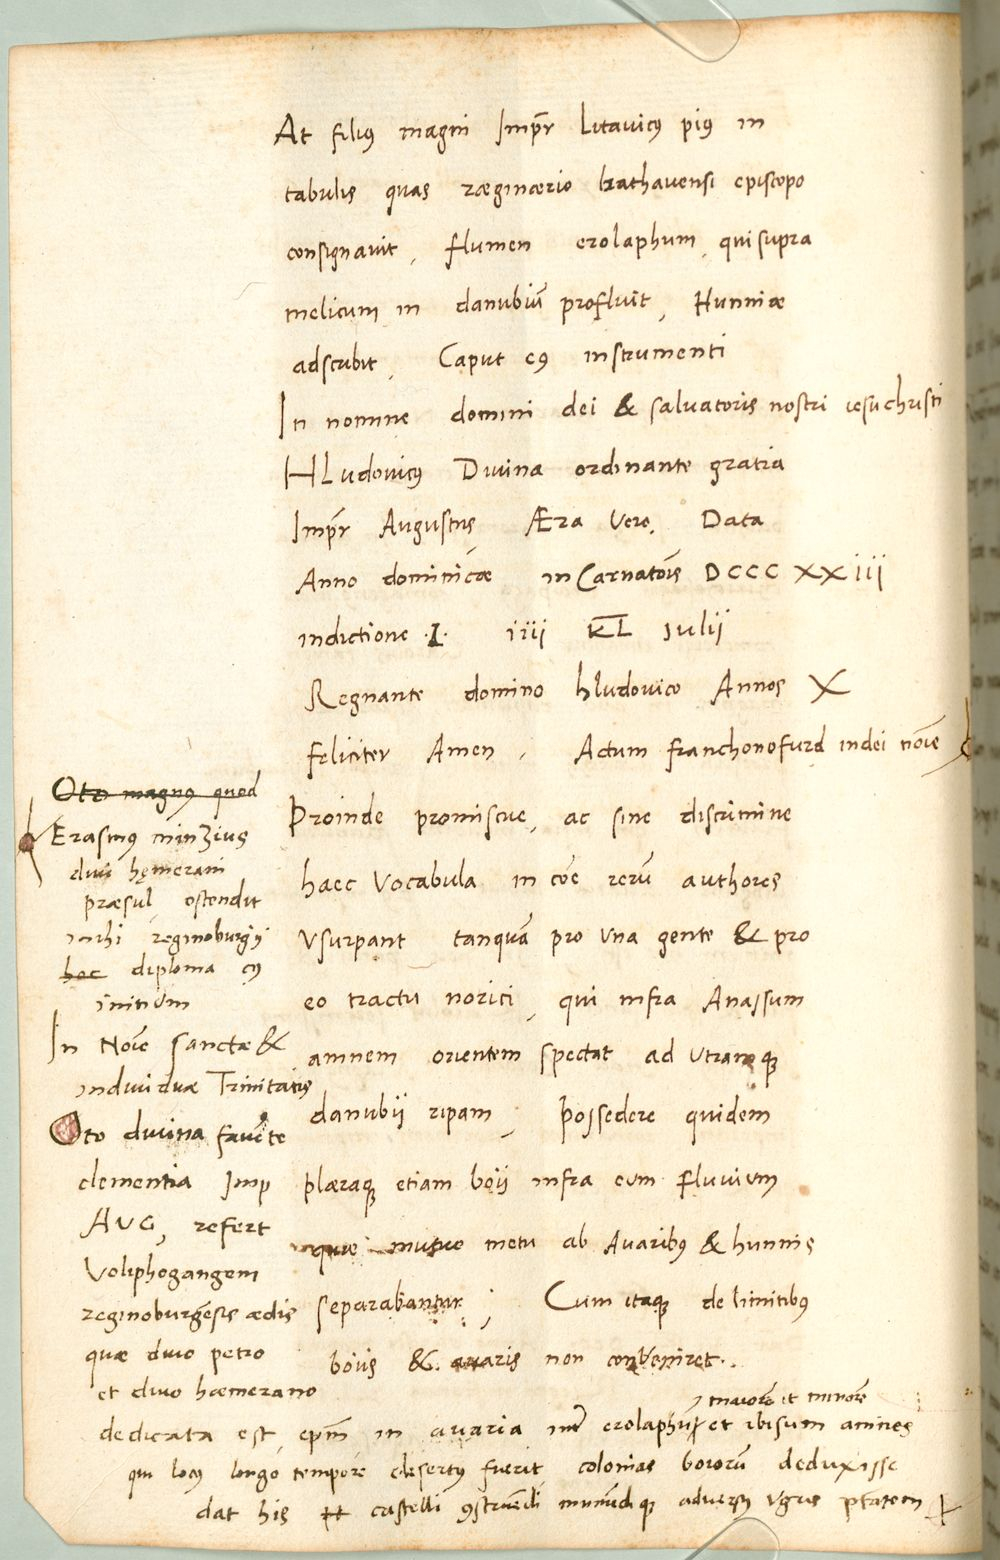 At filius magni Imp̄r Litauicus pius in
tabulis quas ræginærio bathauensi episcopo
consignauit, flumen erolaphum, qui supra
melicum in danubiū profluit, Hunniæ
adscribit, Caput eius instrumenti
In nomine domini dei & saluatoris nostri iesuchristi
HLudouicus Diuina ordinante gratia
Imp̄r Augustus Æra Vero, Data
Anno dominicæ inCarnatōis DCCC XXiii
indictione ·I· iiii KL iulii
Regnante domino hludouico Annos X
feliciter Amen, Actum franchonofurd indei nōīe
Proinde promiscue, ac sine discrimine
haec Vocabula in cōe rerū authores
Vsurpant tanquā pro Vna gente & pro
eo tractu norici, qui infra Anassum
amnem orientem spectat ad Vtramque
danubij ripam, Possedere quidem
plæraque etiam boij infra eum fluuium
quæ mutuo metu ab Auaribus & hunnis
separabantur; Cum itaque de limitibus
boiis & auaris non conveniret.
Oto magnus quod
Erasmus minZius
diui hęmerani
præsul ostendit
mihi reginoburgij
hoc diploma cuius
initium
In Nōīe sanctæ &
indiuiduæ Trinitatis
Oto diuina favēte
clementia Imp
AUG, refert
Voliphogangem
reginoburgēsis ædis
quæ diuo petro
et diuo hæmerano
maiorē et minorē
dedicata est, epm̄ in auaria int̄ erolaphū et ibisum amnes
qui locus longo tempore desertus fuerit colonias boiorū deduxisse
dat his castelli construēdi muniūdique aduersus Vgros ptātem